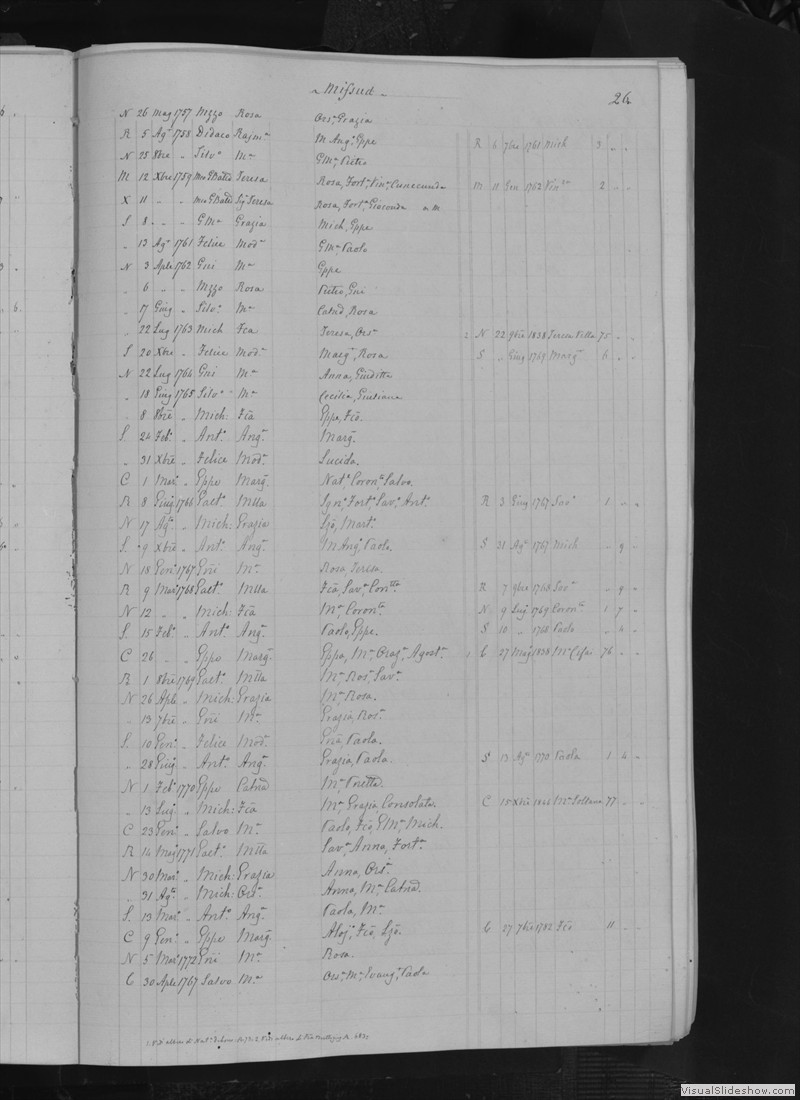 Mifsud
26
N 26 Mag 1757 Mzzo Rosa Ors.ª Grazia
R 5 Agº 1758 Didaco Rajmª M. Angª, Gppe R 6 7bre 1761 Mich 3 " "
N 25 8bre " Silvº Mª GMª, Pietro
M 12 Xbre 1759 Mro GBatta Teresa Rosa, Fortª, Vinª, Cunecunda M 11 Gen 1762 2 " "
X 11 " " Mro GBatta Teresa Rosa, Fortª, Gioconda
S 8 " " GMª Grazia Mich, Gppe
" 13 Agº 1761 Felice Modª GMª, Paolo
N 3 Aple 1762 Gni Mª Gppe
" 6 " " Mzzo Rosa Pietro, Gni
" 17 Giug " Silvº Mª Catnd, Rosa
" 22 Lug 1763 Mich Fca Teresa, Orsª 2 N 22 9bre 1838 Teresa Vella 75 " "
S 20 Xbre " Felice Modª Margª, Rosa S " Giug 1769 Margª 6 " "
N 22 Lug 1764 Gni Mª Anna, Giuditta
" 18 Giug 1765 Silvº Mª Cecilia, Giuliana
" 8 8bre " Mich: Fca Gppa, Fco.
S. 24 Febº " Antº Angª Margª
" 31 Xbre " Felice Modª Lucida.
C 1 Marº " Gppe Margª Natª, Coronta, Salvo.
R 8 Giug 1766 Gaetº Mlla Ignº, Fortª, Savª, Ant. R 3 Giug 1767 Savª 1 " "
N 17 Agº " Mich: Grazia Ljo, Martª
S. 9 Xbre " Antº Angª M. Angº, Paolo. S 31 Agº 1767 Mich " 9 "
N 18 Genº 1767 Gni Mª Rosa, Teresa.
R 9 Marº 1768 Gaetº Mlla Fca, Savª R 7 9bre 1768 Savª " 9 "
N 12 " " Mich: Fca Mª, Coronta N. 9 Lug 1769 Coronta 1 7 "
S. 15 Febº " Antº Angª Paolo, Gppe. S 10 " 1768 Paolo " 4 "
C 26 " " Gppe Margª Gppa, Mª, Grazª, Agostª 1 C 27 Mag 1838 Mª Cifai 76 " "
R 1 8bre 1769 Gaetº Mlla Mª, Rosª, Savª
N 26 Aple " Mich: Grazia Mª, Rosa.
" 13 7bre " Gni Mª Grazia, Rosª
S. 10 Genº " Felice Modª Gnna, Paola.
" 28 Giug " Antº Angª Grazia, Paola. S 13 Agº 1770 Paola 1 4 "
N 1 Febº 1770 Gppe Catnd Mª
" 13 Lug " Mich: Fca Mª, Grazia, Consolata. C 15 Xbre Mª Soltana 77 " "
C 23 Genº " Salvo Mª Paolo, Fco, GMª, Mich.
R 14 Mag 1771 Gaetº Mlla Savª, Anna, Fortª
N 30 Marº " Mich: Grazia Anna, Orsª
" 31 Agº " Mich: Orsª Anna, Mª, Catnd.
S. 13 Marº " Antº Angª Paola, Mª
C 9 Genº " Gppe Margª Aloj, Fco, Ljo. C 27 7bre 1782 Fco 11 " "
N 5 Marº 1772 Gni Mª Rosa.
C 30 Aple 1767 Salvo Mª Orsª, Mª, Evangª, Paola
VisualSlideshow.com